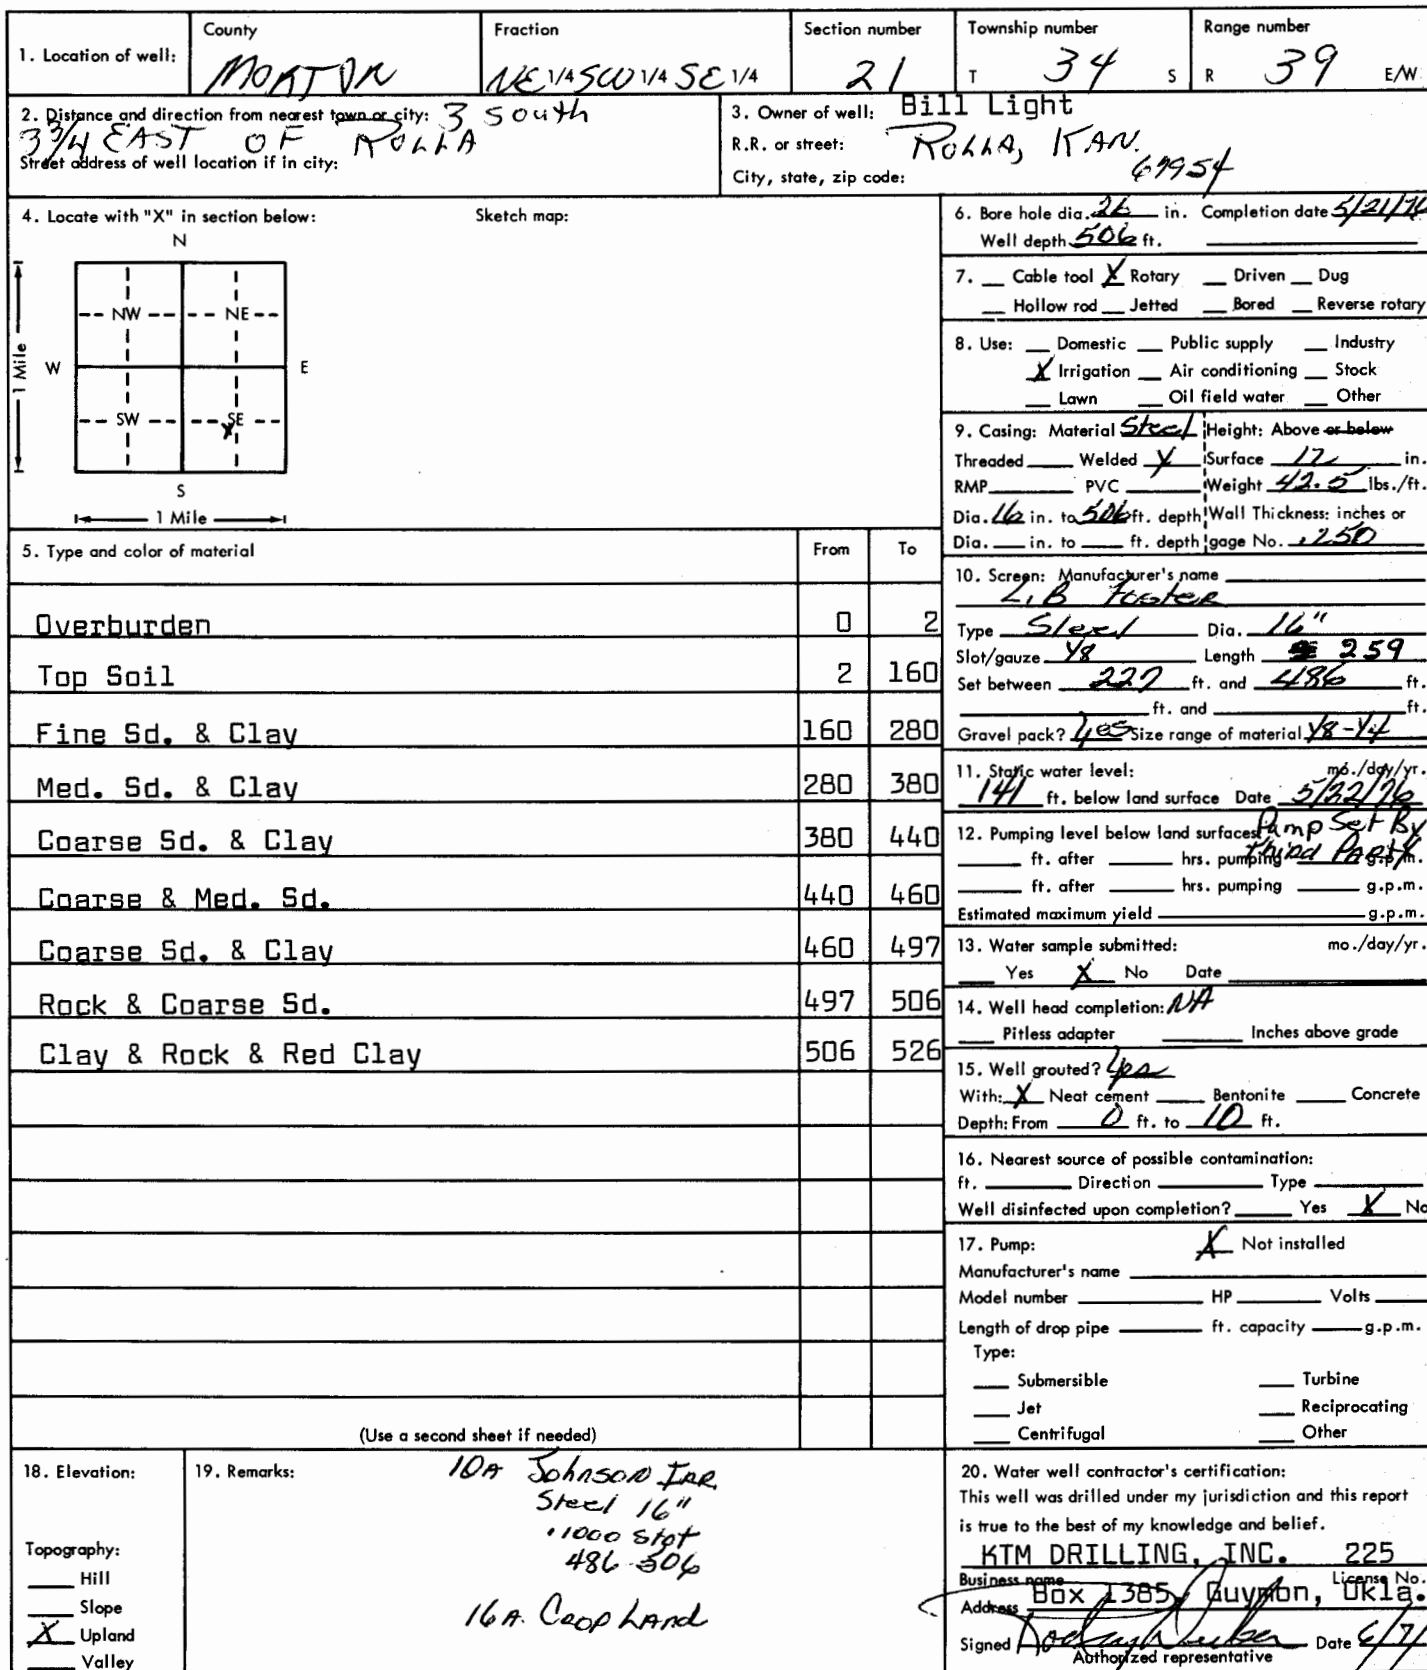 1. Location of well:
County
MORTON
Fraction
NE 1/4 SW 1/4 SE 1/4
Section number
21
Township number
T 34 S
Range number
R 39 E/W
2. Distance and direction from nearest town or city: 3 South
3 3/4 EAST OF ROLLA
Street address of well location if in city:
3. Owner of well: Bill Light
R.R. or street: ROLLA, KAN.
City, state, zip code: 67954
4. Locate with "X" in section below:
Sketch map:
N
NW NE
W E
1 Mile
SW SE
X
S
1 Mile
5. Type and color of material From To
Overburden 0 2
Top Soil 2 160
Fine Sd. & Clay 160 280
Med. Sd. & Clay 280 380
Coarse Sd. & Clay 380 440
Coarse & Med. Sd. 440 460
Coarse Sd. & Clay 460 497
Rock & Coarse Sd. 497 506
Clay & Rock & Red Clay 506 526
(Use a second sheet if needed)
6. Bore hole dia. 26 in. Completion date 5/21/76
Well depth 506 ft.
7. __ Cable tool X Rotary __ Driven __ Dug
__ Hollow rod __ Jetted __ Bored __ Reverse rotary
8. Use: __ Domestic __ Public supply __ Industry
X Irrigation __ Air conditioning __ Stock
__ Lawn __ Oil field water __ Other
9. Casing: Material Steel Height: Above or below
Threaded ____ Welded X Surface 12 in.
RMP ____ PVC ____ Weight 42.5 lbs./ft.
Dia. 16 in. to 506 ft. depth Wall Thickness: inches or
Dia. ___ in. to ___ ft. depth gage No. .250
10. Screen: Manufacturer's name
L.B Foster
Type Steel Dia. 16"
Slot/gauze 1/8 Length 259
Set between 227 ft. and 486 ft.
____ ft. and ____ ft.
Gravel pack? Yes Size range of material 1/8-1/4
11. Static water level: mo./day/yr.
141 ft. below land surface Date 5/22/76
12. Pumping level below land surfaces: Pump Set By
____ ft. after ____ hrs. pumping Third Party g.p.m.
____ ft. after ____ hrs. pumping ____ g.p.m.
Estimated maximum yield ____ g.p.m.
13. Water sample submitted: mo./day/yr.
__ Yes X No Date ____
14. Well head completion: NA
__ Pitless adapter ____ Inches above grade
15. Well grouted? Yes
With: X Neat cement ____ Bentonite ____ Concrete
Depth: From 0 ft. to 10 ft.
16. Nearest source of possible contamination:
ft. ____ Direction ____ Type ____
Well disinfected upon completion? ____ Yes X No
17. Pump: X Not installed
Manufacturer's name ____
Model number ____ HP ____ Volts ____
Length of drop pipe ____ ft. capacity ____ g.p.m.
Type:
__ Submersible __ Turbine
__ Jet __ Reciprocating
__ Centrifugal __ Other
18. Elevation:
Topography:
__ Hill
__ Slope
X Upland
__ Valley
19. Remarks: 10A Johnson Irr.
Steel 16"
.1000 Slot
486-506
16A. Crop Land
20. Water well contractor's certification:
This well was drilled under my jurisdiction and this report
is true to the best of my knowledge and belief.
KTM DRILLING, INC. 225
Business name License No.
Address Box 1385, Guymon, Okla.
Signed Date 6/7/
Authorized representative